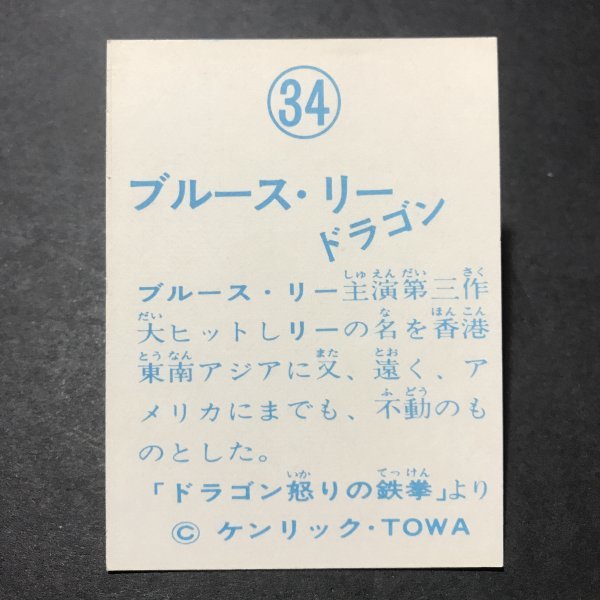 34
ブルース・リー
ドラゴン
ブルース・リー主演第三作
大ヒットしリーの名を香港
東南アジアに又、遠く、ア
メリカにまでも、不動のも
のとした。
「ドラゴン怒りの鉄拳」より
© ケンリック・TOWA